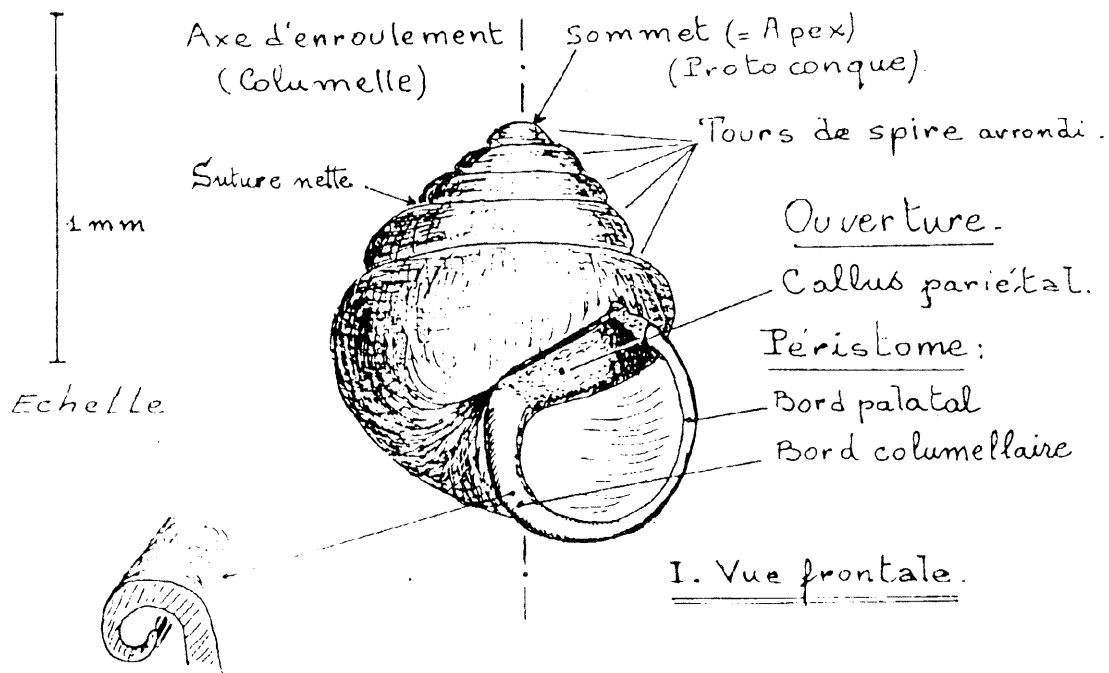 Axe d'enroulement
(Columelle)
Sommet (= Apex)
(Protoconque).
Tours de spire arrondi.
Suture nette.
1 mm
Ouverture.
Callus pariétal.
Péristome:
Echelle
Bord palatal
Bord columellaire
I. Vue frontale.